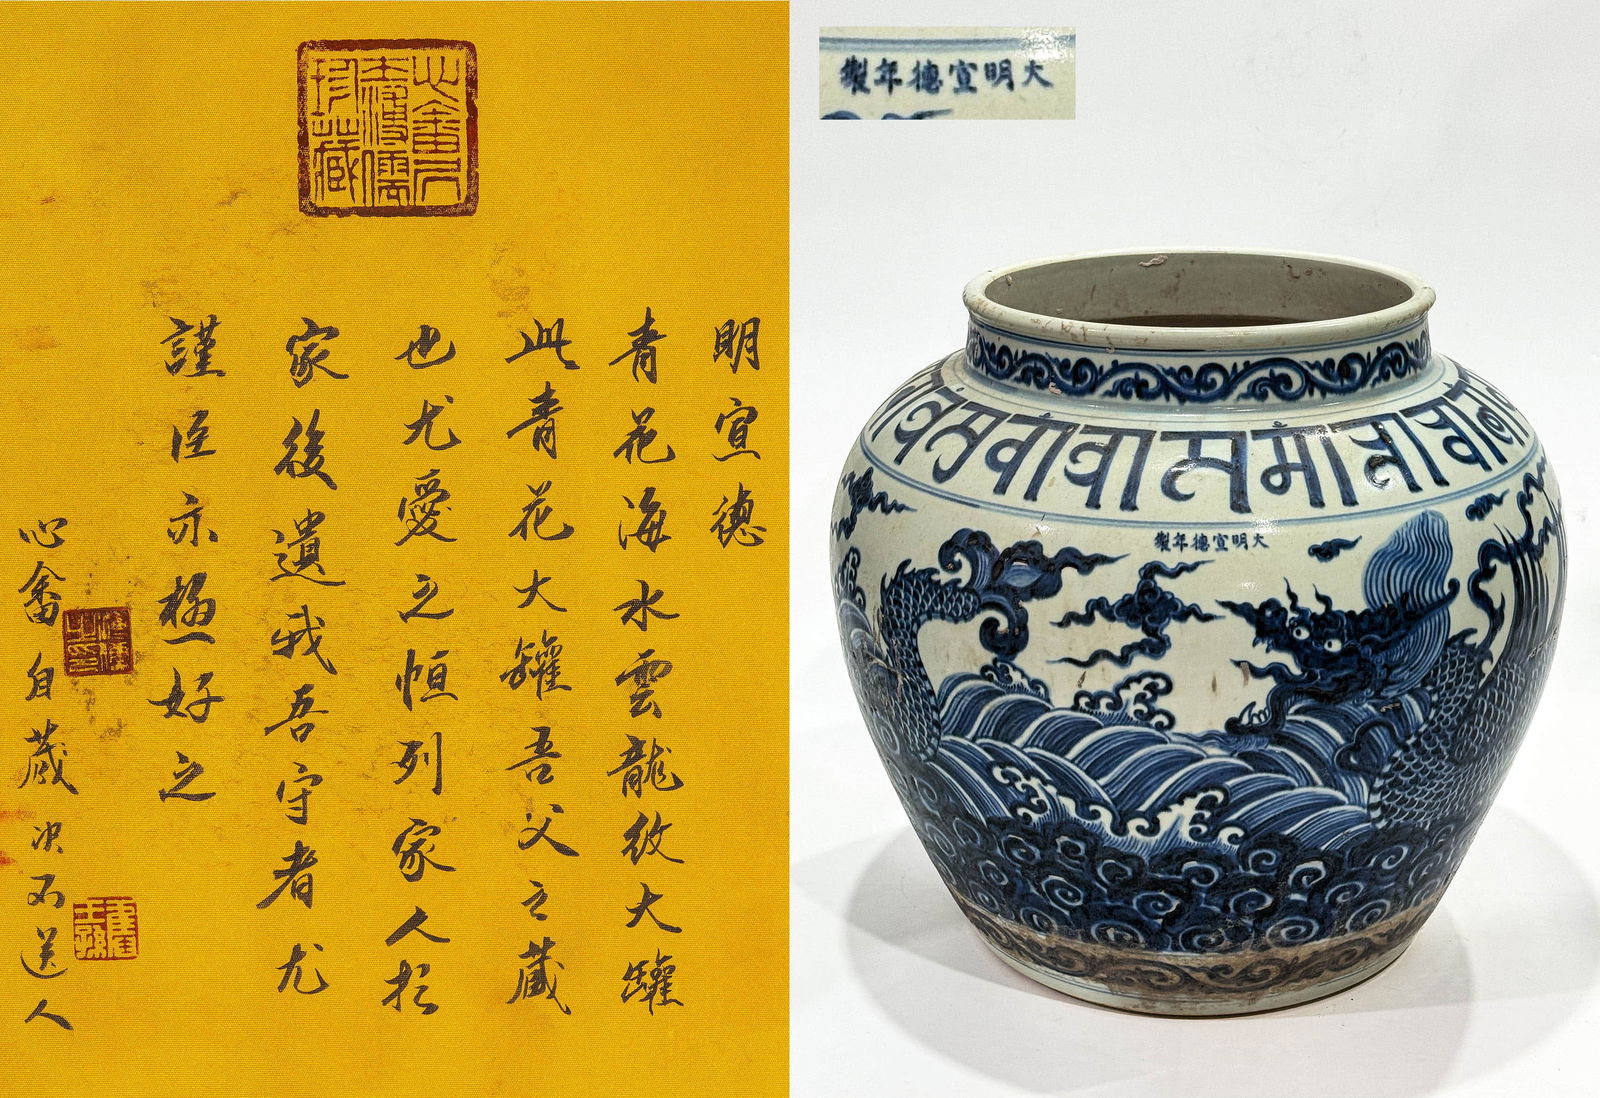 明宣德
青花海水雲龍紋大罐
此青花大罐吾父之藏
也尤愛之恒列家人於
家後遺我吾守者尤
謹臣亦極好之
心畬自藏決不送人
溥儒之印
舊王孫
大明宣德年製
大明宣德年製